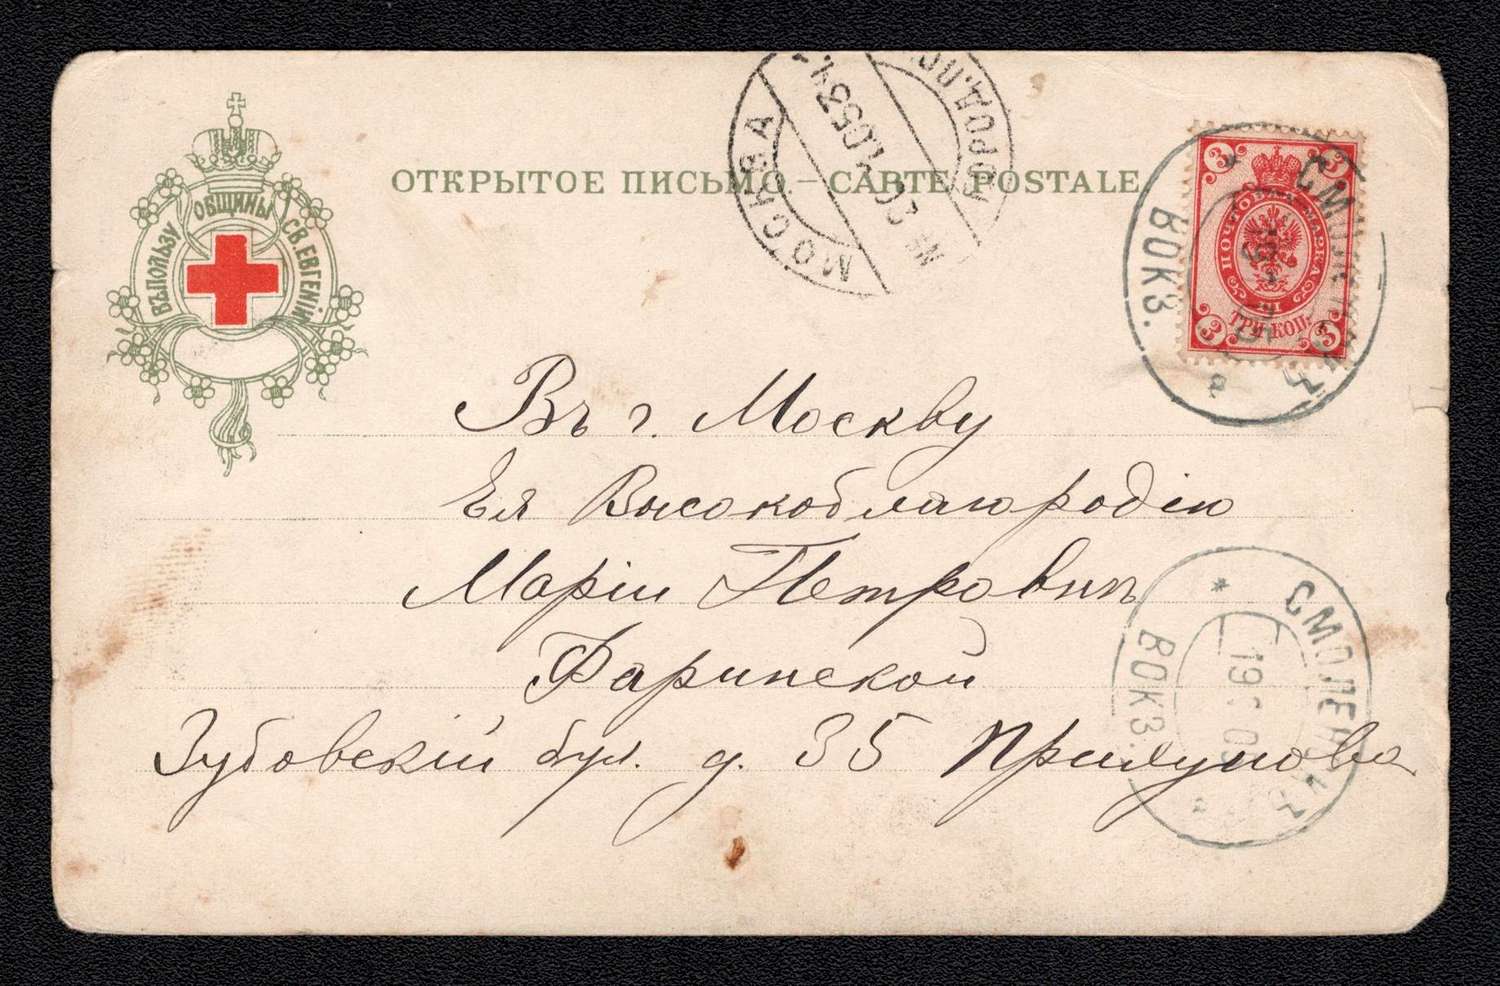 ВЪ ПОЛЬЗУ ОБЩИНЫ СВ. ЕВГЕНІИ
ОТКРЫТОЕ ПИСЬМО. — CARTE POSTALE
МОСКВА
МОСКВА
ГОРОД. ПОЧ
3 3
ПОЧТОВАЯ МАРКА
ТРИ КОП.
3 3
СМОЛЕНСК
ВОКЗ.
Въ г. Москву
Ея Высокоблагородію
Маріи Петровнѣ
Фаринской
Зубовскій бул. д. 35
СМОЛЕНСК
19
ВОКЗ.